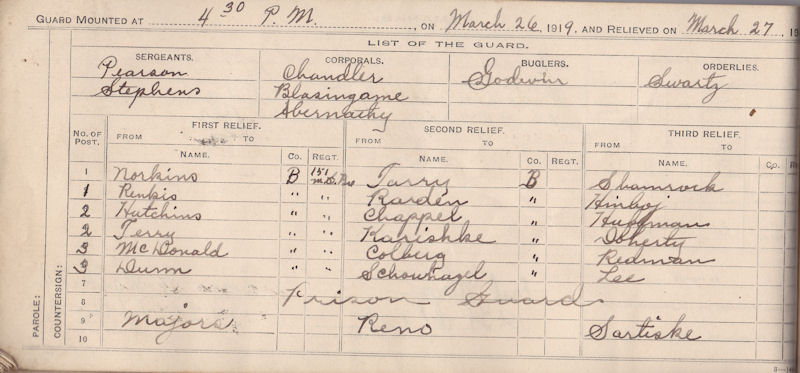 GUARD MOUNTED AT 4 30 P.M. , ON March 26, 1919, AND RELIEVED ON March 27, 19
LIST OF THE GUARD.
SERGEANTS. CORPORALS. BUGLERS. ORDERLIES.
Pearson Chandler Godwin Swartz
Stephens Blasingame
Abernathy
No. OF POST. FIRST RELIEF. SECOND RELIEF. THIRD RELIEF.
FROM TO FROM TO FROM TO
NAME. Co. REGT. NAME. Co. REGT. NAME. Co. R
1 Norkins B 151 Tarry B Shamrock
1 Renkis " " Rarden " Himboj
2 Hutchins " " Chappel " Huffman
2 Terry " " Kanishke " Doherty
3 McDonald " " Colberg " Redman
3 Dunn " " Schounagel " Lee
7
8 Prison Guards
9 Majors Reno Sartiske
10
PAROLE:
COUNTERSIGN: